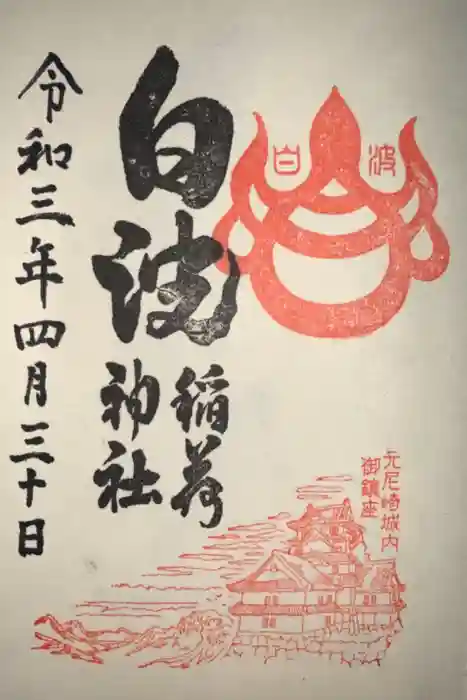 白波
元尼崎城内
御鎮座
白波
稲荷
神社
令和三年四月三十日